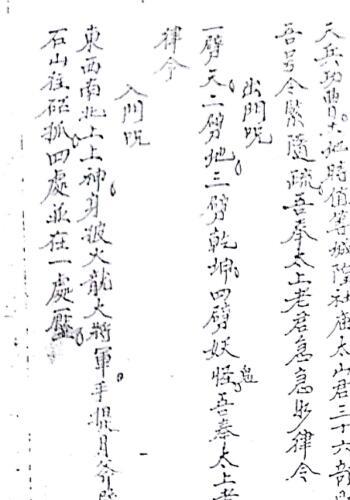 天兵功曹土地時值等城隍社庙太山君三十六部
吾号令緊隨疏吾奉太上老君急急如律令
出門呪
一劈天二劈地三劈乾坤四劈妖怪鬼吾奉太上老
律令
入門呪
東西南北上上神身披火龍大將軍手提月斧
石山往砍孤四處並在一處壓